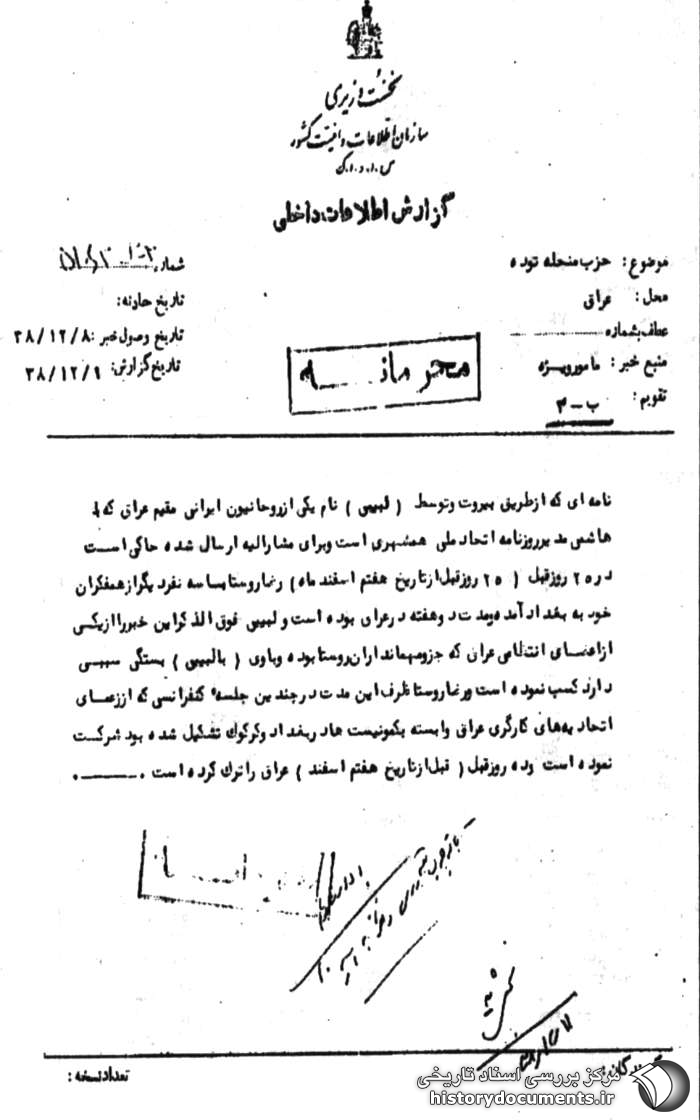 نخست وزیری
سازمان اطلاعات و امنیت کشور
س.ا.و.ا.ک
گزارش اطلاعات داخلی
موضوع: حزب منحله توده
محل: عراق
عطف بشماره
منبع خبر: مامورویژه
تقویم: ب-۳
شماره
تاریخ حادثه:
تاریخ وصول خبر: ۳۸/۱۲/۸
تاریخ گزارش: ۳۸/۱۲/۹
محرمانه
نامه ای که ازطریق بیروت وتوسط (لبیبی) نام یکی ازروحانیون ایرانی مقیم عراق که با
هاشمی مدیرروزنامه اتحاد ملی همشهری است وبرای مشارالیه ارسال شده حاکی است
در۲۵ روزقبل (۲۵ روزقبل ازتاریخ هفتم اسفند ماه) رضاروستاباسه نفردیگرازهمفکران
خود به بغداد آمده ومدت دوهفته درعراق بوده است ولبیبی فوق الذکراین خبرراازیکی
ازاعضای انتظامی عراق که جزومهمانداران روستا بوده وباوی (بالبیبی) بستگی سببی
دارد کسب نموده است ورضاروستا ظرف این مدت درچندین جلسه کنفرانسی که اززعمای
اتحادیه های کارگری عراق وابسته بکمونیست ها دربغداد وکرکوک تشکیل شده بود شرکت
نموده است وده روزقبل (قبل ازتاریخ هفتم اسفند) عراق راترک کرده است .
تعداد نسخه:
مرکز بررسی اسناد تاریخی
historydocuments.ir